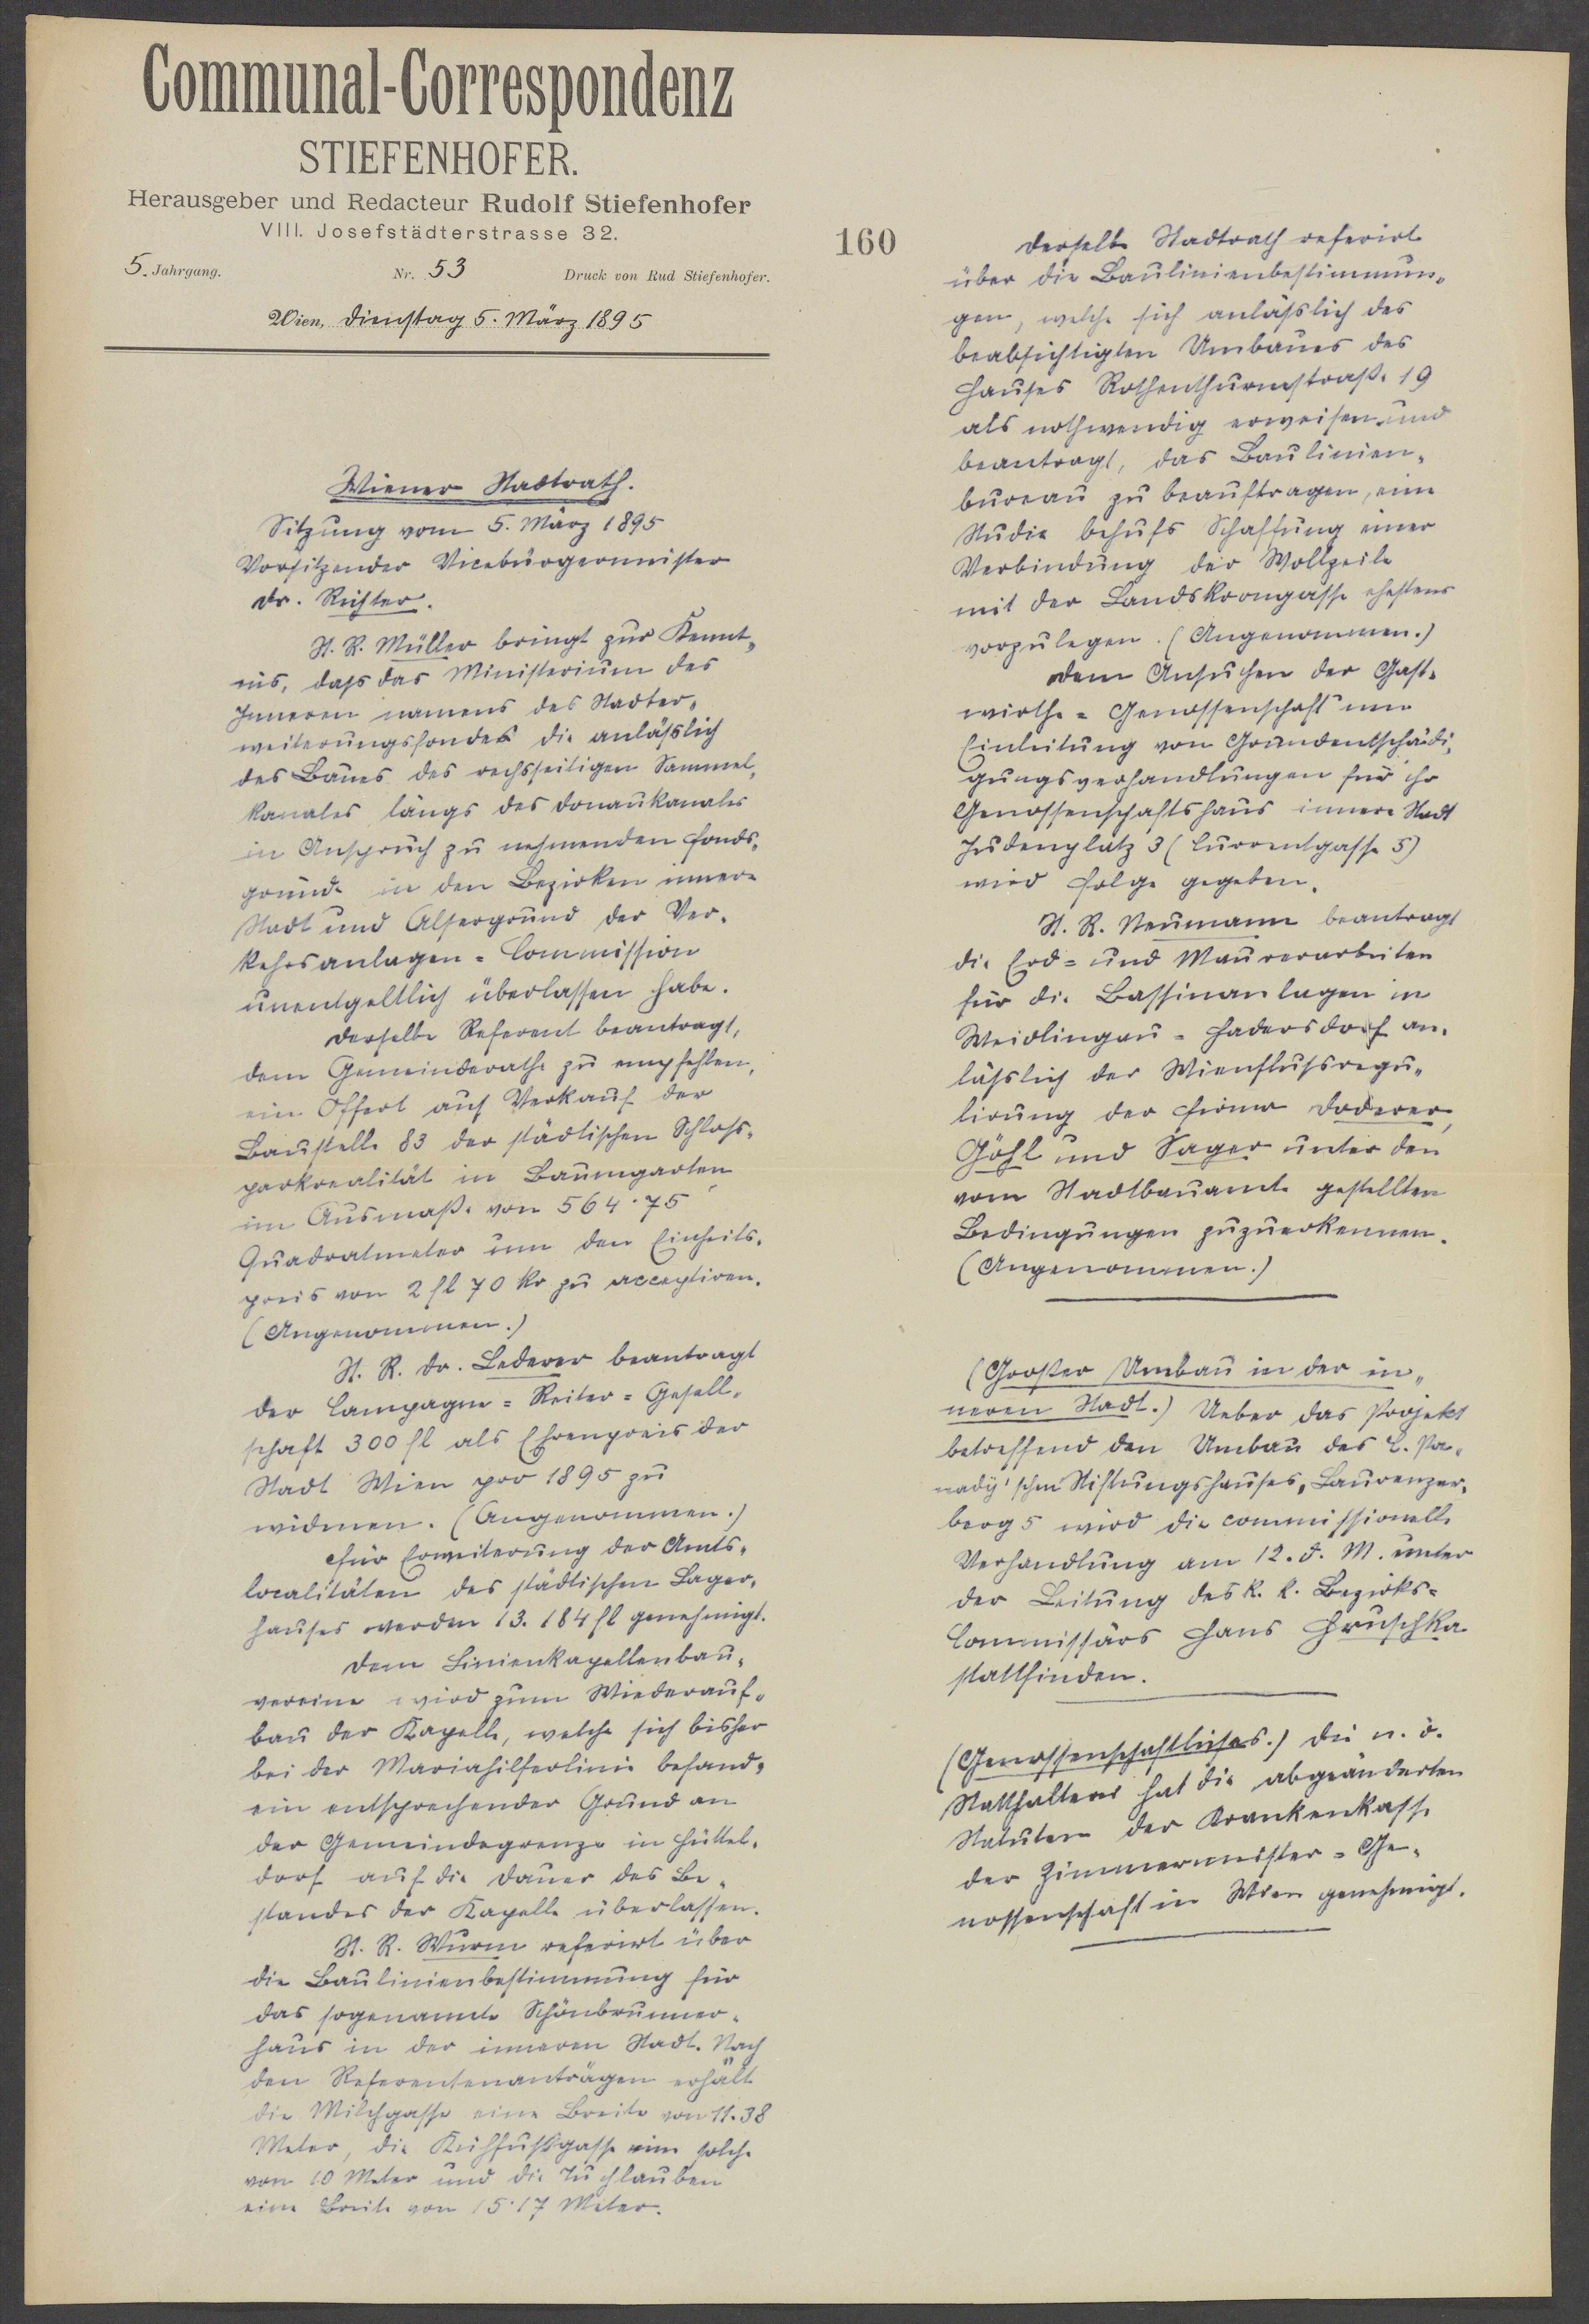 Communal-Correspondenz
STIEFENHOFER.
Herausgeber und Redacteur Rudolf Stiefenhofer
VIII. Josefstädterstrasse 32.
5. Jahrgang. Nr. 53 Druck von Rud Stiefenhofer.
Wien, Dienstag 5. März 1895
Wiener Stadtrath.
Sitzung vom 5. März 1895
Vorsitzender Vicebürgermeister
Dr. Richter.
St. R. Müller bringt zur Kennt-
nis, dass das Ministerium des
Inneren namens des Stadter-
weiterungsfondes die anlässlich
des Baues des rechsseitigen Sammel-
kanales längs des Donaukanales
in Anspruch zu nehmenden Fonds-
gründe in den Bezirken innere
Stadt und Alsergrund der Ver-
kehrsanlagen-Commission
unentgeltlich überlassen habe.
Derselbe Referent beantragt,
dem Gemeinderathe zu empfehlen,
ein Offert auf Verkauf der
Baustelle 83 der städtischen Schloss-
parkrealität in Baumgarten
im Ausmaße von 564.75
Quadratmeter um den Einheits-
preis von 2 fl 70 kr zu acceptiren.
(Angenommen.)
St. R. Dr. Lederer beantragt
der Campagne-Reiter-Gesell-
schaft 300 fl als Ehrenpreis der
Stadt Wien pro 1895 zu
widmen. (Angenommen.)
Für Erweiterung der Amts-
localitäten des städtischen Lager-
hauses werden 13.184 fl genehmigt.
Dem Linienkapellenbau-
vereine wird zum Wiederauf-
bau der Kapelle, welche sich bisher
bei der Mariahilferlinie befand,
ein entsprechender Grund an
der Gemeindegrenze in Hüttel-
dorf auf die Dauer des Be-
standes der Kapelle überlassen.
St. R. Wurm referirt über
die Baulinienbestimmung für
das sogenannte Schönbrunner-
haus in der inneren Stadt. Nach
den Referentenanträgen erhält
die Milchgasse eine Breite von 11.38
Meter, die Kühfußgasse eine solche
von 10 Meter und die Tuchlauben
eine Breite von 15.17 Meter.
160
Derselbe Stadtrath referirt
über die Baulinienbestimmun-
gen, welche sich anlässlich des
beabsichtigten Umbaues des
Hauses Rothenthurmstraße 19
als nothwendig erweisen und
beantragt, das Baulinien-
bureau zu beauftragen, eine
Studie behufs Schaffung einer
Verbindung der Wollzeile
mit der Landskrongasse ehestens
vorzulegen. (Angenommen.)
Dem Ansuchen der Gast-
wirthe-Genossenschaft um
Einleitung von Grundentschädi-
gungsverhandlungen für ihr
Genossenschaftshaus innere Stadt
Judenplatz 3 (Currentgasse 5)
wird Folge gegeben.
St. R. Neumann beantragt
die Erd- und Maurerarbeiten
für die Bassinanlagen in
Weidlingau-Hadersdorf an-
lässlich der Wienflussregu-
lirung der Firma Doderer,
Göhl und Sager unter den
vom Stadtbauamte gestellten
Bedingungen zuzuerkennen.
(Angenommen.)
(Großer Umbau in der in-
neren Stadt.) Ueber das Projekt
betreffend den Umbau des L. Pa-
nady'schen Stiftungshauses, Laurenzer-
berg 5 wird die commissionelle
Verhandlung am 12. d. M. unter
der Leitung des k. k. Bezirks-
Commissärs Hans Hruschka
stattfinden.
(Genossenschaftliches.) Die n. ö.
Statthalterei hat die abgeänderten
Statuten der Krankenkasse
der Zimmermeister-Ge-
nossenschaft in Wien genehmigt.